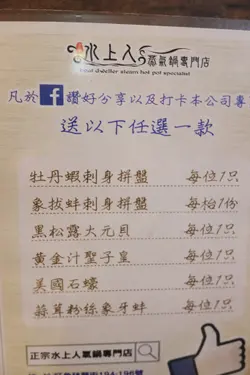 水上人蒸氣鍋專門店
Boat dweller steam hot pot specialist
凡於f讚好分享以及打卡本公司專
送以下任選一款
牡丹蝦刺身拼盤 每位1只
象拔蚌刺身拼盤 每枱1份
黑松露大元貝 每位1只
黃金汁聖子皇 每位1只
美國石蠔 每位1只
蒜茸粉絲象牙蚌 每位1只
正宗水上人氣鍋專門店
194-196號